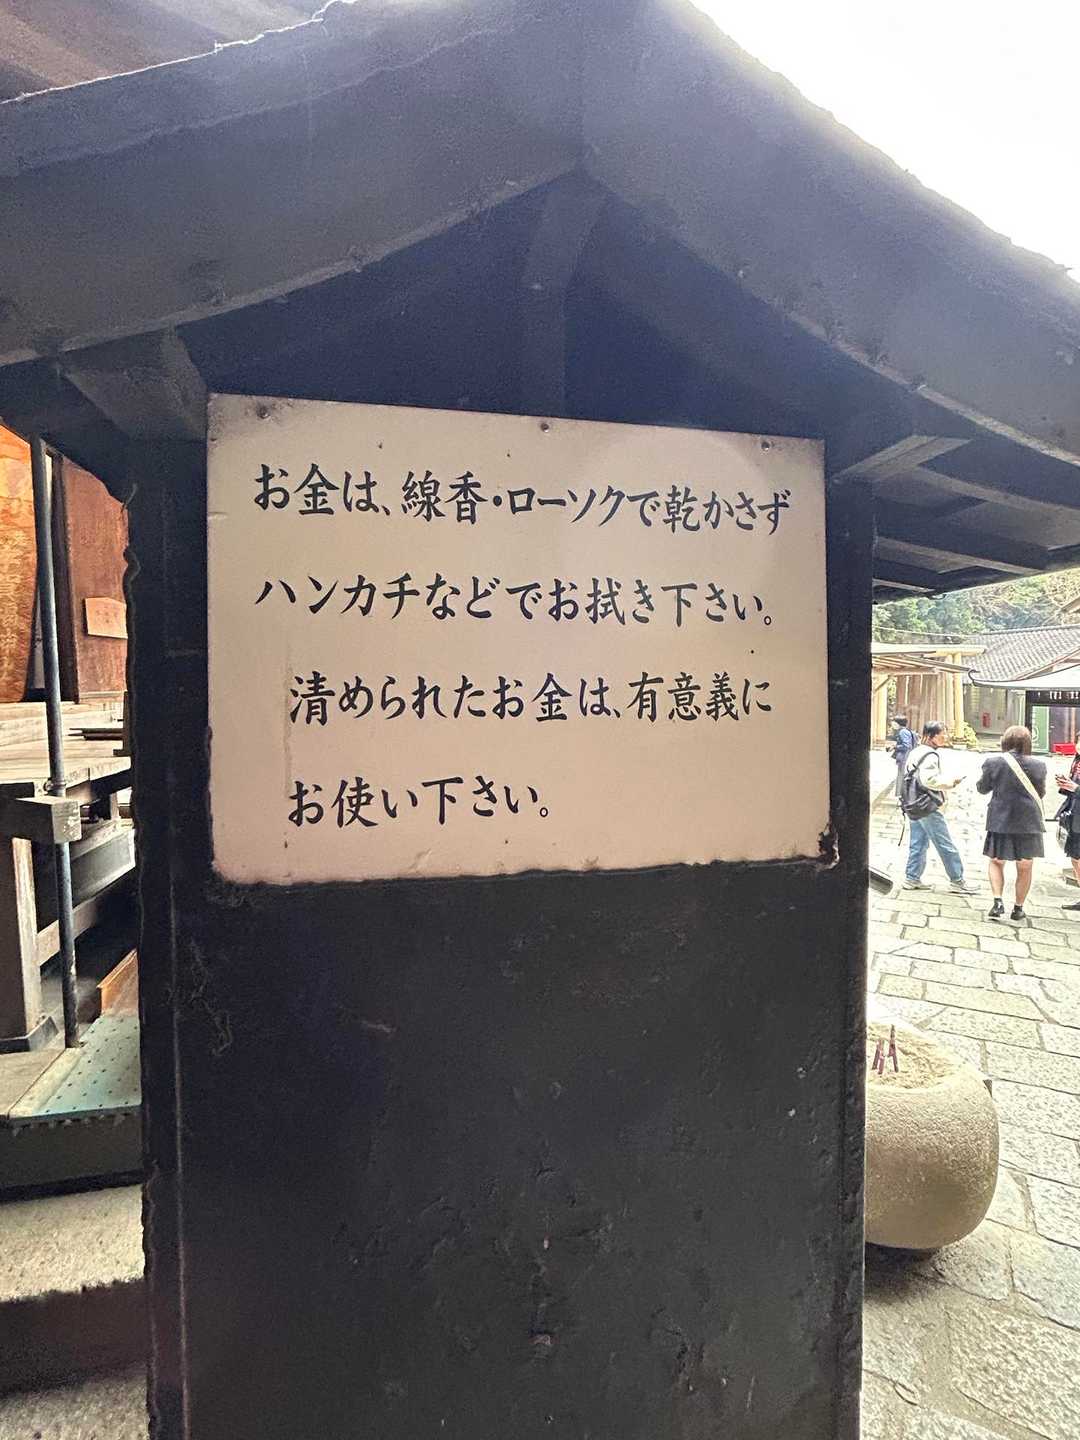 お金は、線香・ローソクで乾かさず
ハンカチなどでお拭き下さい。
清められたお金は、有意義に
お使い下さい。